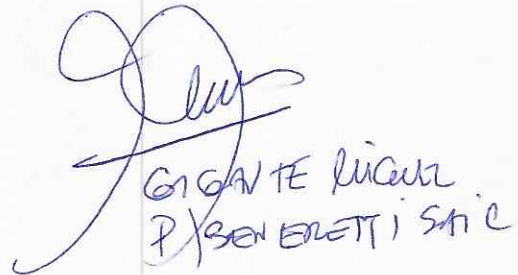 GIGANTE MIGUEL
P/ BENEDETTI SAIC